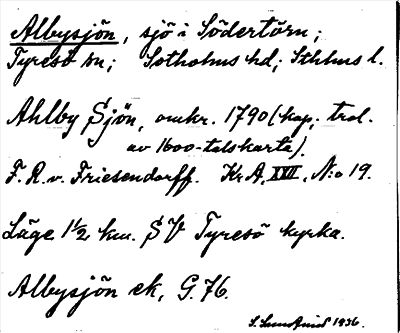 Albysjön, sjö i Södertörn;
Tyresö sn; Sotholms hd; Sthlms l.
Ahlby Sjön, omkr. 1790 (kop. trol.
av 1600-talskarta).
F. R. v. Friesendorff. Kr A, XVI, N:o 19.
Läge 1 1/2 km. SV Tyresö kyrka.
Albysjön ek, G. 76.
S. Lundqvist 1936.